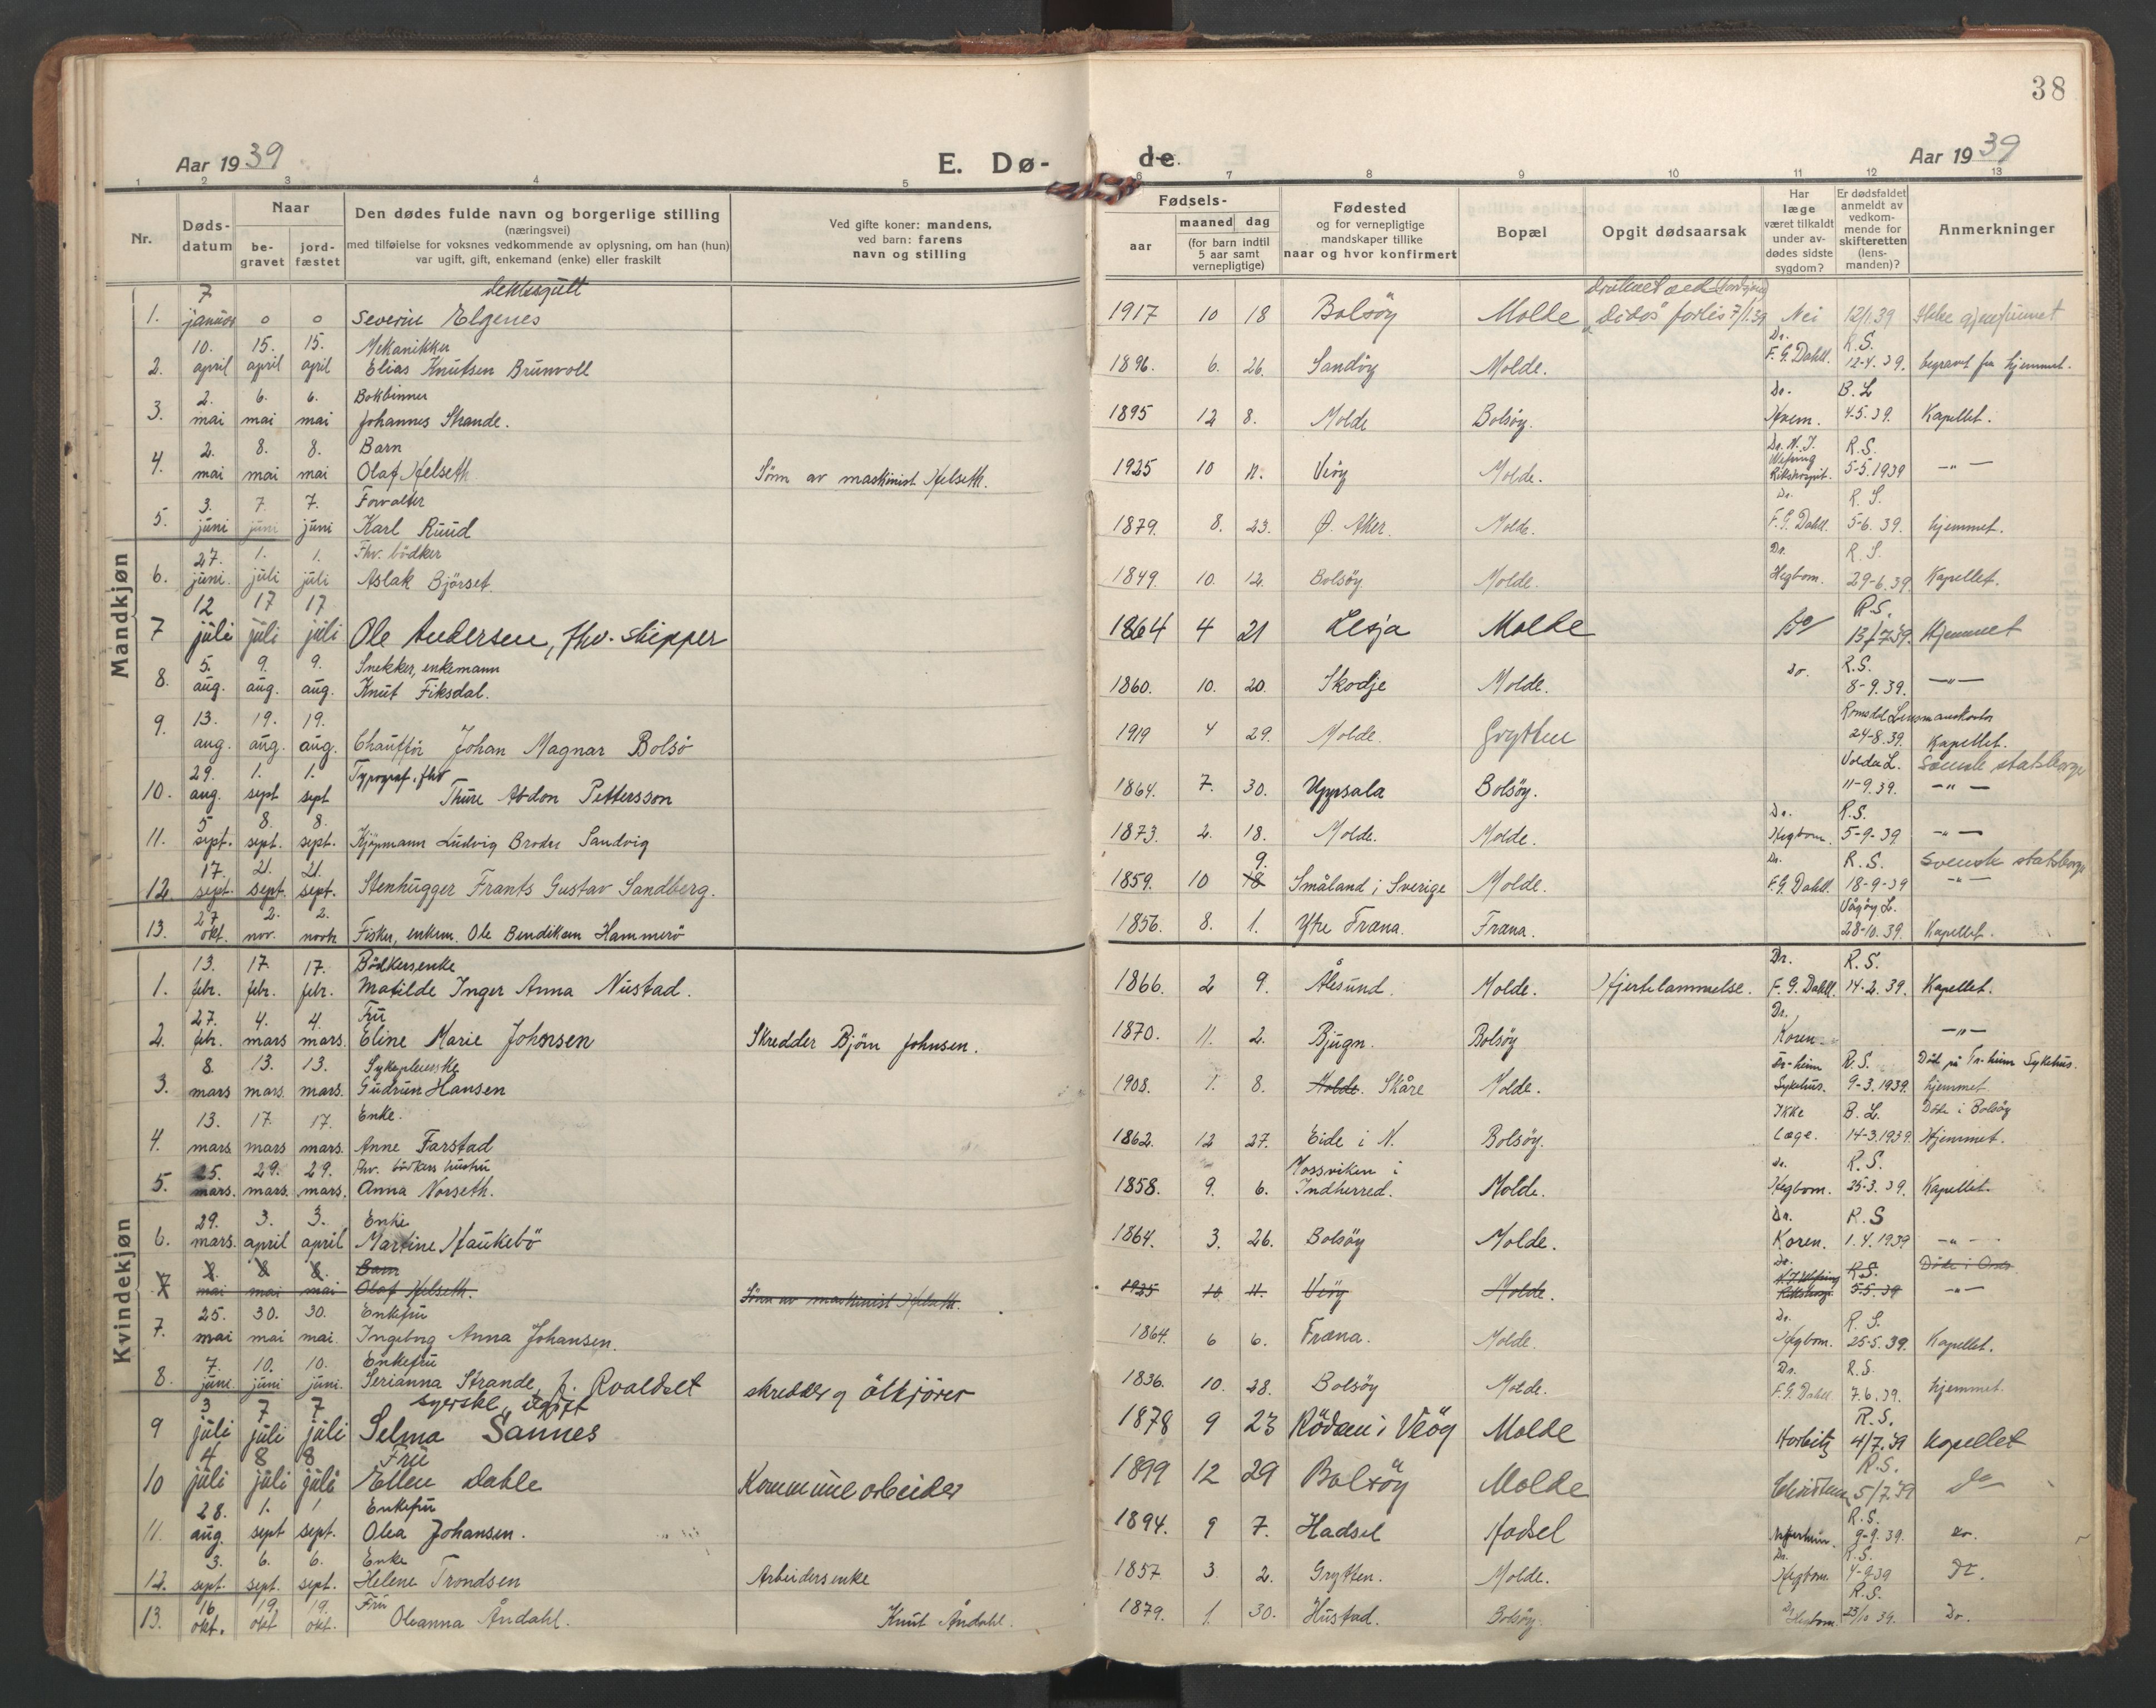 38
Aar 1939 E. Dø- de. Aar 1939
1 2 3 4 5 6 7 8 9 10 11 12 13
Nr.
Døds-
datum
Naar
be-
gravet
jord-
fæstet
Den dødes fulde navn og borgerlige stilling
(næringsvei)
med tilføielse for voksnes vedkommende av oplysning, om han (hun)
var ugift, gift, enkemand (enke) eller fraskilt
Ved gifte koner: mandens,
ved barn: farens
navn og stilling
Fødsels-
aar
maaned dag
(for barn indtil
5 aar samt
vernepligtige)
Fødested
og for vernepligtige
mandskaper tillike
naar og hvor konfirmert
Bopæl
Opgit dødsaarsak
Har
læge
været tilkaldt
under av-
dødes sidste
sygdom?
Er dødsfaldet
anmeldt av
vedkom-
mende for
skifteretten
(lens-
manden)?
Anmerkninger
Mandkjøn
7 dekksgutt
1. januar o o Severin Elgenes 1917 10 18 Bolsöy Molde "Didos" forlis 7/1.39 Nei 12/1.39 Ikke gjenfunnet
10. 15. 15. Mekaniker Dr. R.S.
2. april april april Elias Knutsen Brunvoll 1896. 6. 26. Sandöy Molde. F.G. Dahll. 12-4.39. begravet fra hjemmet.
2. 6. 6. Bokbinner Dr. B.L
3. mai mai mai Johannes Strande. 1895 12 8. Molde Bolsöy. 4.5.39. Kapellet.
2. 8. 8. Barn R.S.
4. mai mai mai Olaf Helseth Sönn av maskinist Helseth. 1925 10 11. Veöy Molde. Rikshospit. 5-5.1939 -"-
3. 7. 7. Forvalter Dr. R.S.
5. juni juni juni Karl Ruud 1879. 8. 23. Ø. Aker. Molde. F.G. Dahll. 5-6.39. hjemmet.
27. 1. 1. Fhv. bödker Dr. R.S.
6. juni. juli juli Aslak Björset. 1849. 10. 12. Bolsöy Molde. Hegbom. 29-6.39. Kapellet.
12 17 17 R.S.
7 juli juli juli Ole Andersen, fhv. skipper 1864 4 21 Lesja Molde 13/7.39. Hjemmet
5. 9. 9. Snekker, enkemann R.S.
8. aug. aug. aug. Knut Fiksdal. 1860. 10. 20. Skodje Molde. do. 8-9.39. -"-
13. 19. 19. Romsdal Lensmannkontor
9. aug. aug. aug. Chaufför Johan Magnar Bolsö 1919 4 29. Molde. Grytten 24-8.39. Kapellet.
29. 1. 1. Typograf, fhv Volda L. Svensk statsborger
10. aug. sept sept Thure Abdon Pettersson 1864. 7. 30. Uppsala Bolsöy. 11-9.39. -"-
5 8. 8. Dr. R.S.
11. sept. sept. sept. Kjöpmann Ludvig Broder Sandvig 1873. 2. 18. Molde. Molde. Hegbom. 5-9-39 -"-
17. 21. 21. 9. Dr. R.S. Svensk statsborger
12. sept. sept. sept. Stenhugger Frants Gustav Sandberg. 1859. 10 18 Småland i Sverige Molde. F.G. Dahll. 18-9-39 -"-
27 2. 2. Vågöy L.
13. okt. nov. Fisker, enkem. Ole Bendiksen Hammerö 1856. 8. 1. Ytre Fræna. Fræna. 28-10.39. Kapellet.
Kvindekjøn
13. 17. 17. Bödkersenke Dr. R.S.
1. febr. febr. febr. Matilde Inger Anna Nustad. 1866. 2 9. Ålesund. Molde. Hjertelammelse. F.G. Dahll. 14-2.39. Kapellet.
27. 4. 4. Fru Dr.
2. febr. mars mars. Eline Marie Johnsen Skredder Björn Johnsen. 1870. 11. 2. Bjugn. Bolsöy Koren. -"-
8. 13. 13. Sykepleierske Tr-heim R.S. Död på Tr-heim Sykehus.
3. mars mars. mars. Gudrun Hansen 1908. 1. 8. Molde. Skåre Molde. Sykehus. 9-3.1939. hjemmet.
13. 17. 17. Enke. Ikke B.L. Död i Bolsöy
4. mars. mars mars. Anne Farstad 1862. 12 27. Eide i N. Bolsöy. læge. 14-3.1939. Hjemmet.
25. 29. 29. Fhv. bödkers hustru Mossviken i Dr. R.S.
5. mars. mars. mars. Anna Norseth. 1858. 9. 6. Indherred. Molde. Hegbom. 25-3.39. Kapellet.
29. 3. 3. Enke Dr. R.S
6. mars. april april Martine Haukebö 1864. 3. 26. Bolsöy Molde. Koren. 1.4.1939 -"-
8. 8. Barn Dr. R.S. Död i Oslo
7 mai mai mai Olaf Helseth. Sönn av maskinist Helseth. 1925 10 11. Veöy Molde. 5-5.39 -"-
25. 30. 30. Enkefru Dr. R.S.
7. mai mai mai. Ingeborg Anna Johansen. 1864. 6 6. Fræna. Molde. Hegbom. 25-5.39. Kapellet.
7. 10. 10. Enkefru Dr. R.S.
8. juni. juni juni. Serianna Strande, f. Roaldset skredder og ölkjörer 1836. 10. 28. Bolsöy Molde. F.G. Dahll 7.6.39. hjemmet.
3 7 7 syerske, ugift R.S.
9 juli juli juli Selma Sannes 1878 9 23 Röden i Veöy Molde 4/7.39 Kapellet
4 8 8 Fru R.S.
10 juli juli juli Ellen Dahle Kommunearbeider 1899 12 29 Bolsöy Molde 5/7.39 do
28. 1. 1 Enkefru R.S.
11. aug. sept sept. Olea Johansen. 1894. 9 7. Hadsel Hadsel 9-9.39. do.
3. 6. 6. Enke Dr. R.S.
12. sept. sept. sept. Helene Trondsen Arbeidersenke 1857 3 2. Grytten. Molde. Hegbom. 4-9-39
16. 19. 19. Fru R.S.
13. okt. okt okt. Oleanna Åndahl. Knut Åndahl. 1879. 1. 30. Hustad. Bolsöy. Dr Hegbom. 23/10 39. Do.